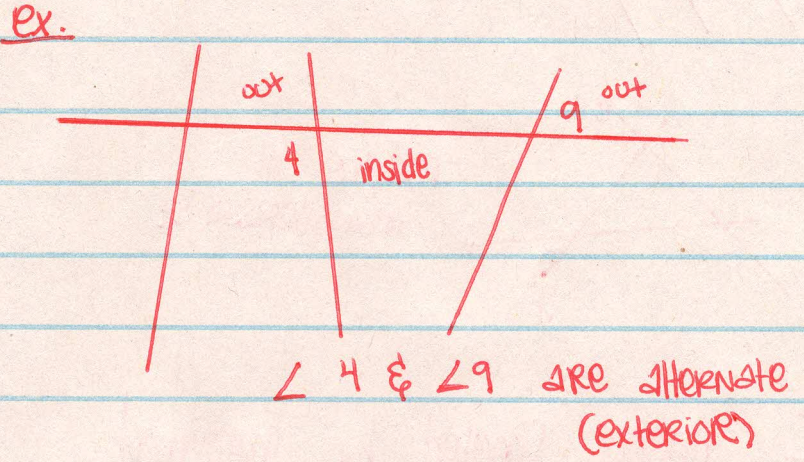 ex.
out out
9
4 inside
∠ 4 & ∠9 are alternate
(exterior)